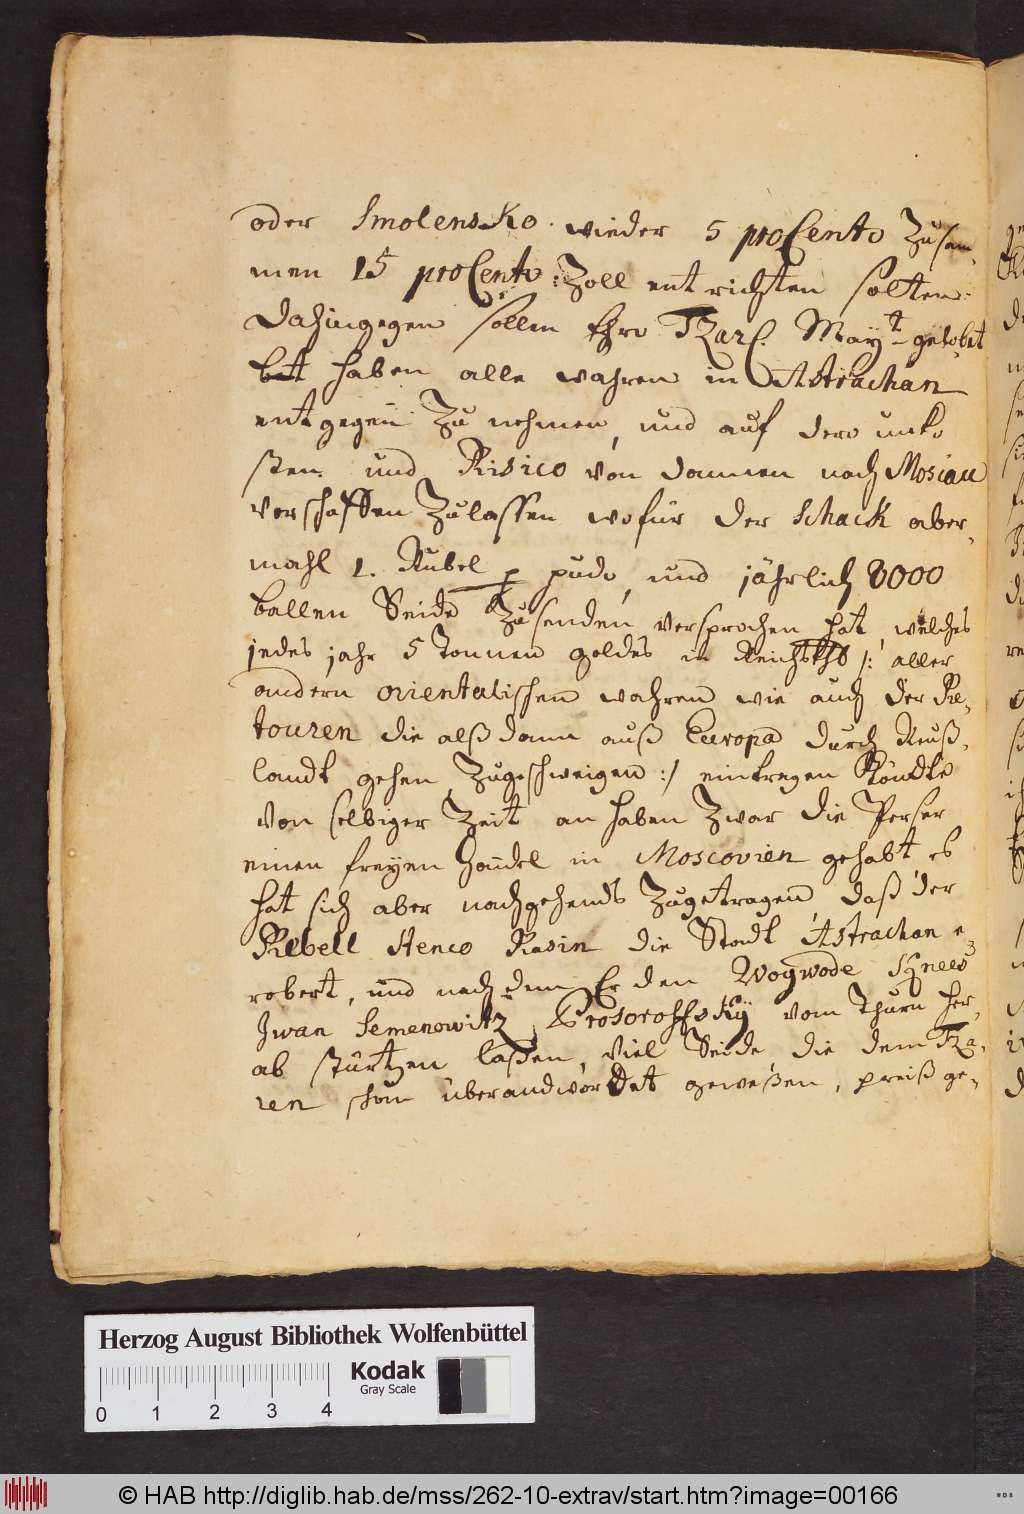 oder Smolensko wieder 5 proCento Zusam-
men 15 proCento Zoll entrichten solten
Dahingegen sollen Ihro Tzarl. Mayt gelobet
haben alle wahren in Astrachan
entgegen Zu nehmen, und auf dero unko
sten und Risico von dannen nach Moscau
verschaffen Zulassen wofür der Schack aber-
mahl 1. Rubel p pudo, und jährlich 8000
ballen Seide Zusenden versprochen hat, welches
jedes jahr 5 Tonnen goldes in Reichsthl /: aller
andern orientalischen wahren wie auch der Re-
touren die alß dann auß Europa durch Reuß-
landt gehen Zugeschweigen :/ eintragen Köndte
von selbiger Zeit an haben Zwar die Perser
einen freyen Handel in Moscovien gehabt es
hat sich aber nachgehends Zugetragen daß der
Rebell Stenco Rasin die Stadt Astrachan e-
robert, und nach dem Er den Woywode Knees
Iwan Semenowitz Prosoroffsky vom Thurn her-
ab stürtzen laßen, viel Seide die dem Tza-
ren schon überandwordet geweßen, preiß ge-
Herzog August Bibliothek Wolfenbüttel
Kodak
Gray Scale
0 1 2 3 4
© HAB http://diglib.hab.de/mss/262-10-extrav/start.htm?image=00166